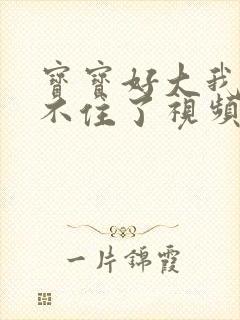 寶寶好大我
不住了視頻
一片錦霞